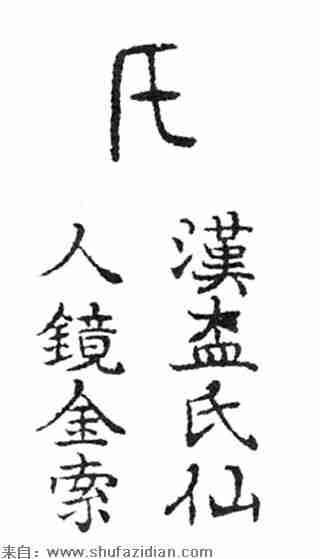 氏
漢盍氏仙
人鏡金索
来自：www.shufazidian.com